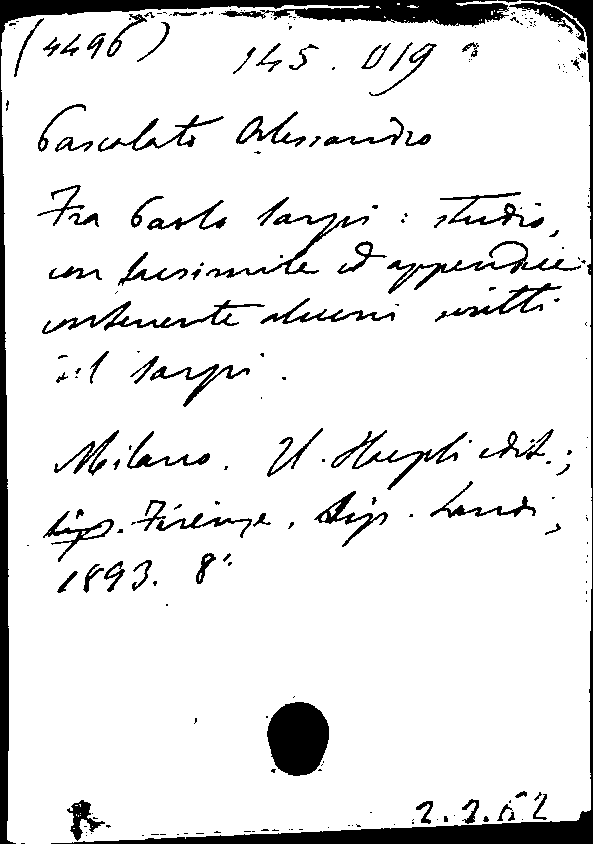 (4496) 145.019
Pascolato Alessandro
Fra Paolo Sarpi : studio,
con facsimile ed appendice
contenente alcuni scritti
del Sarpi.
Milano. U. Hoepli edit.;
tip. Firenze. Tip. Landi,
1893. 8°.
2.2.62